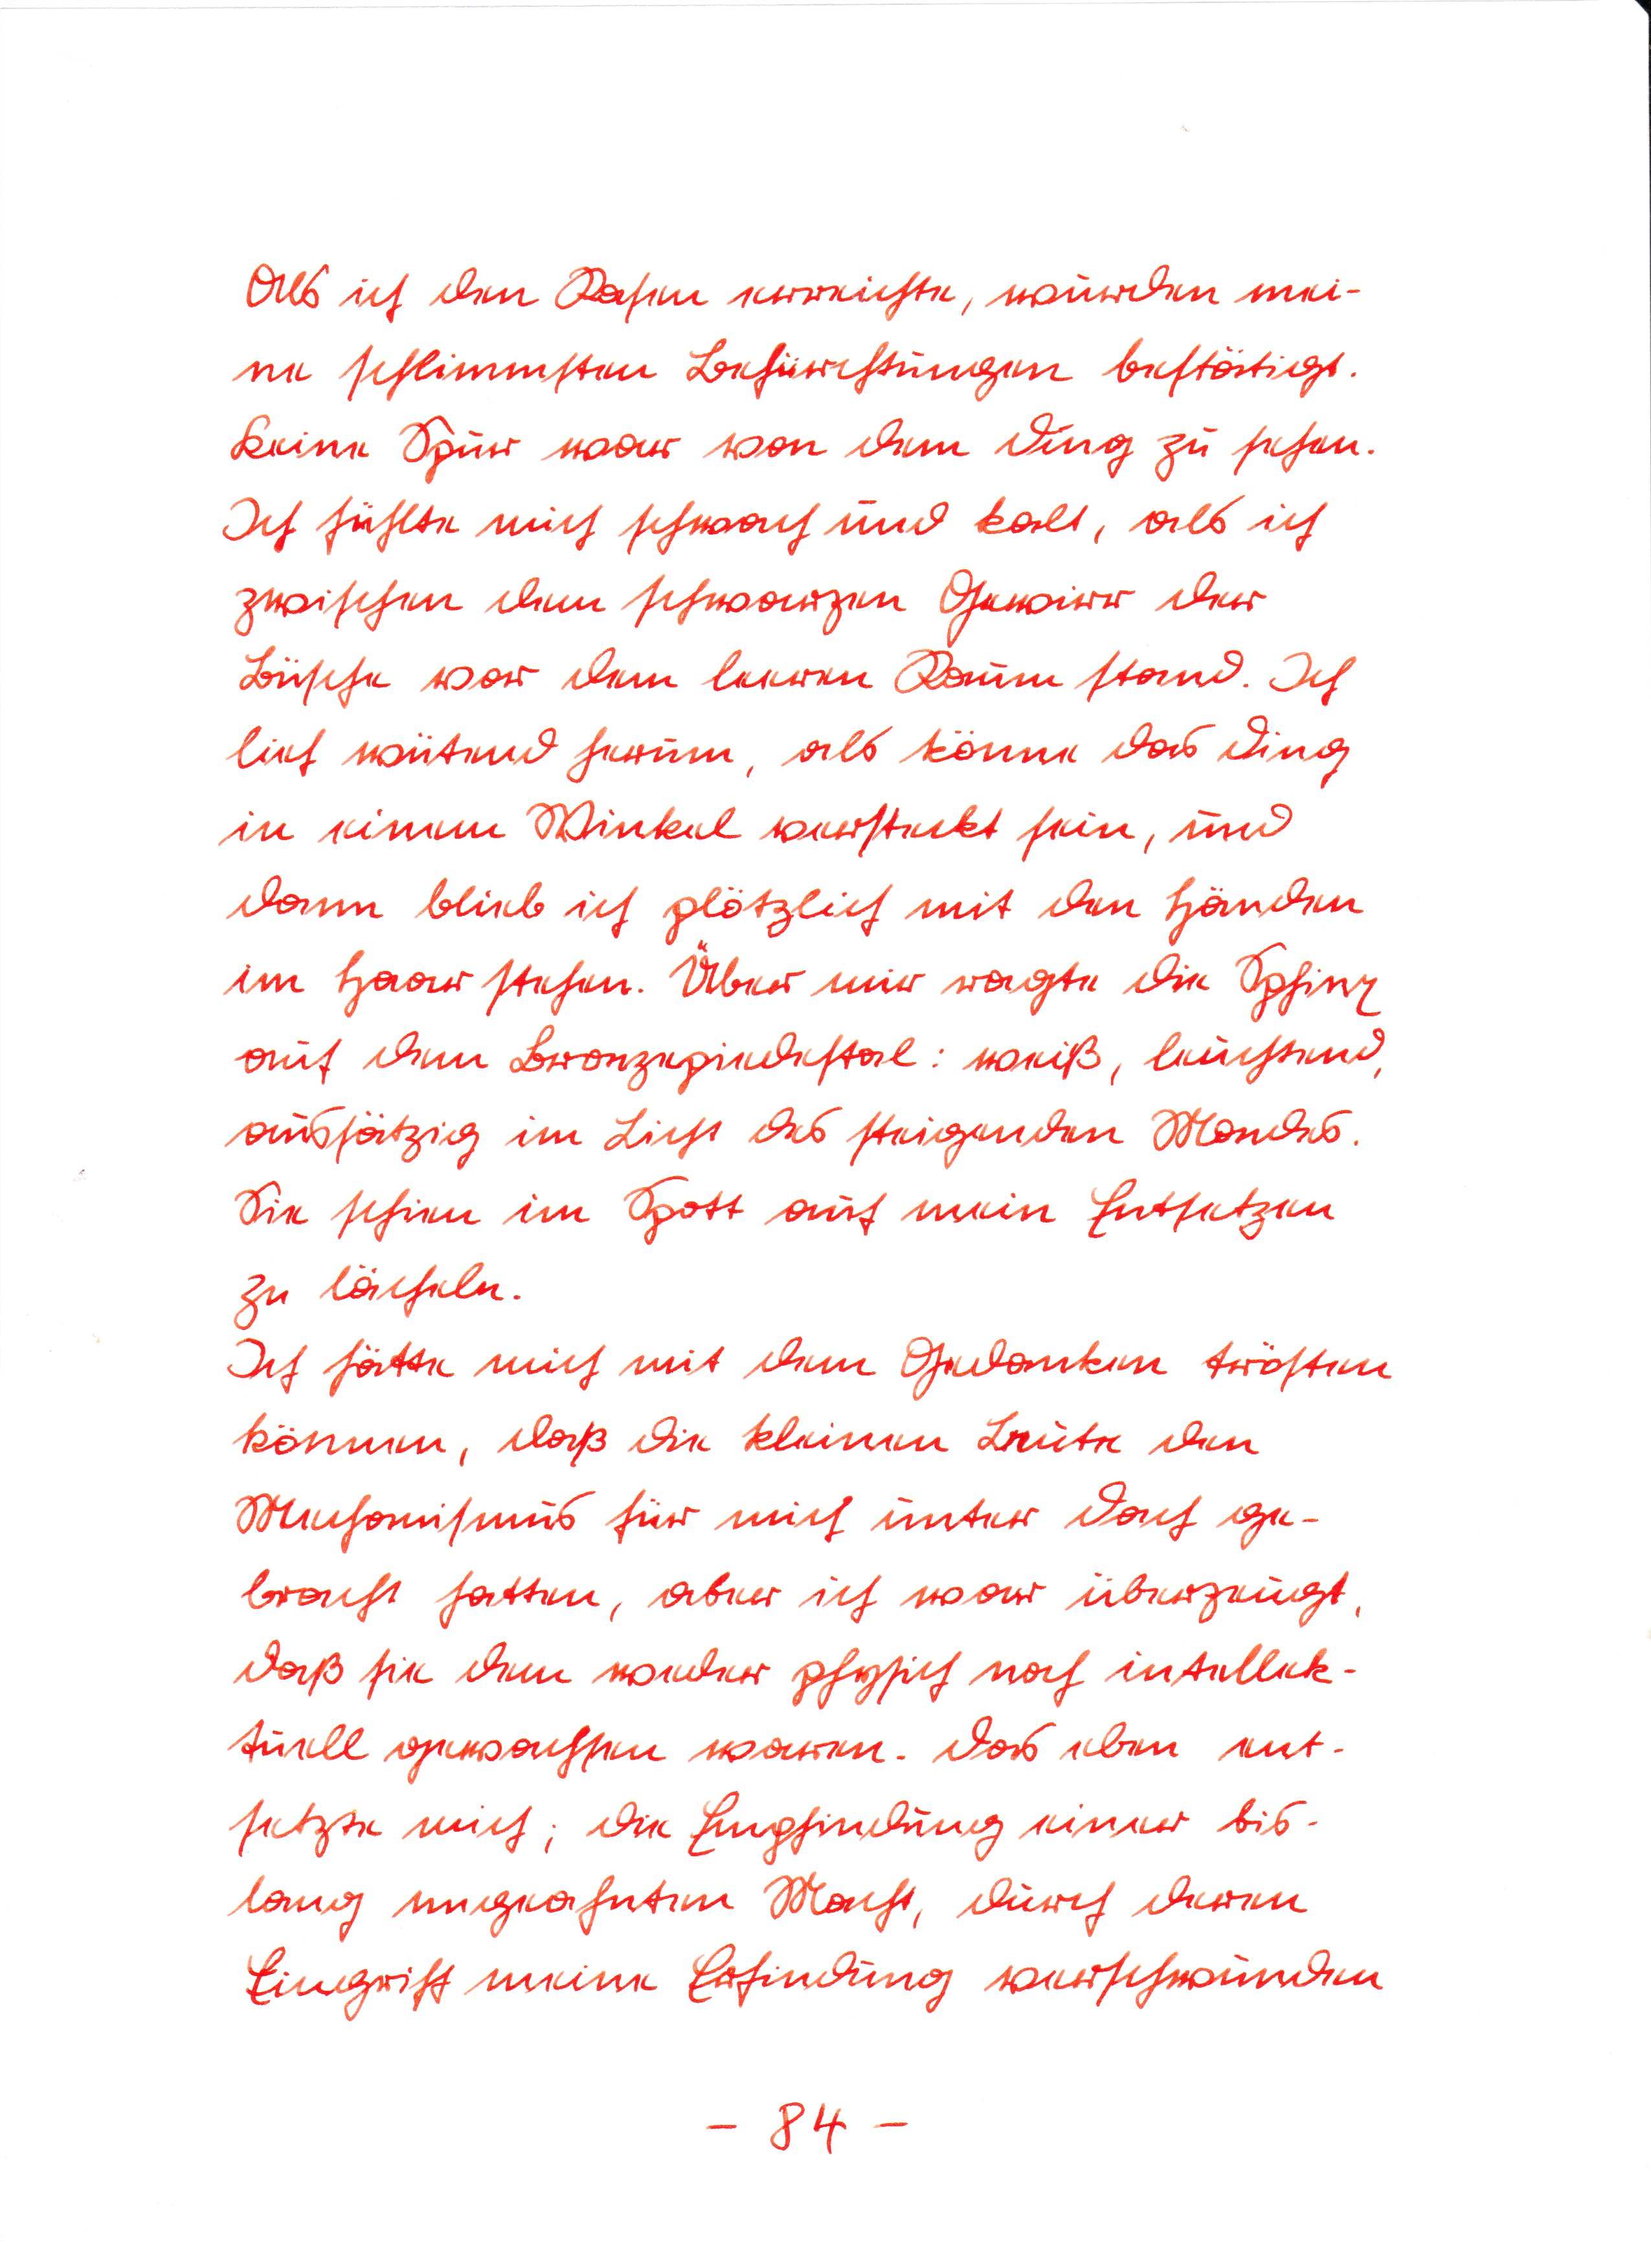 Als ich den Rasen erreichte, wurden mei-
ne schlimmsten Befürchtungen bestätigt.
Keine Spur war von dem Ding zu sehen.
Ich fühlte mich schwach und kalt, als ich
zwischen dem schwarzen Gewirr der
Büsche vor dem leeren Raum stand. Ich
lief wütend herum, als könne das Ding
in einem Winkel versteckt sein, und
dann blieb ich plötzlich mit den Händen
im Haar stehen. Über mir ragte die Sphinx
auf dem Bronzepiedestal: weiß, leuchtend,
aussätzig im Licht des steigenden Mondes.
Sie schien im Spott auf mein Entsetzen
zu lächeln.
Ich hätte mich mit dem Gedanken trösten
können, daß die kleinen Leute den
Mechanismus für mich unter Dach ge-
bracht hatten, aber ich war überzeugt,
daß sie dem weder physich noch intellek-
tuell gewachsen waren. Das eben ent-
setzte mich; die Empfindung einer bis-
lang ungeahnten Macht, durch deren
Eingriff meine Erfindung verschwunden
- 84 -